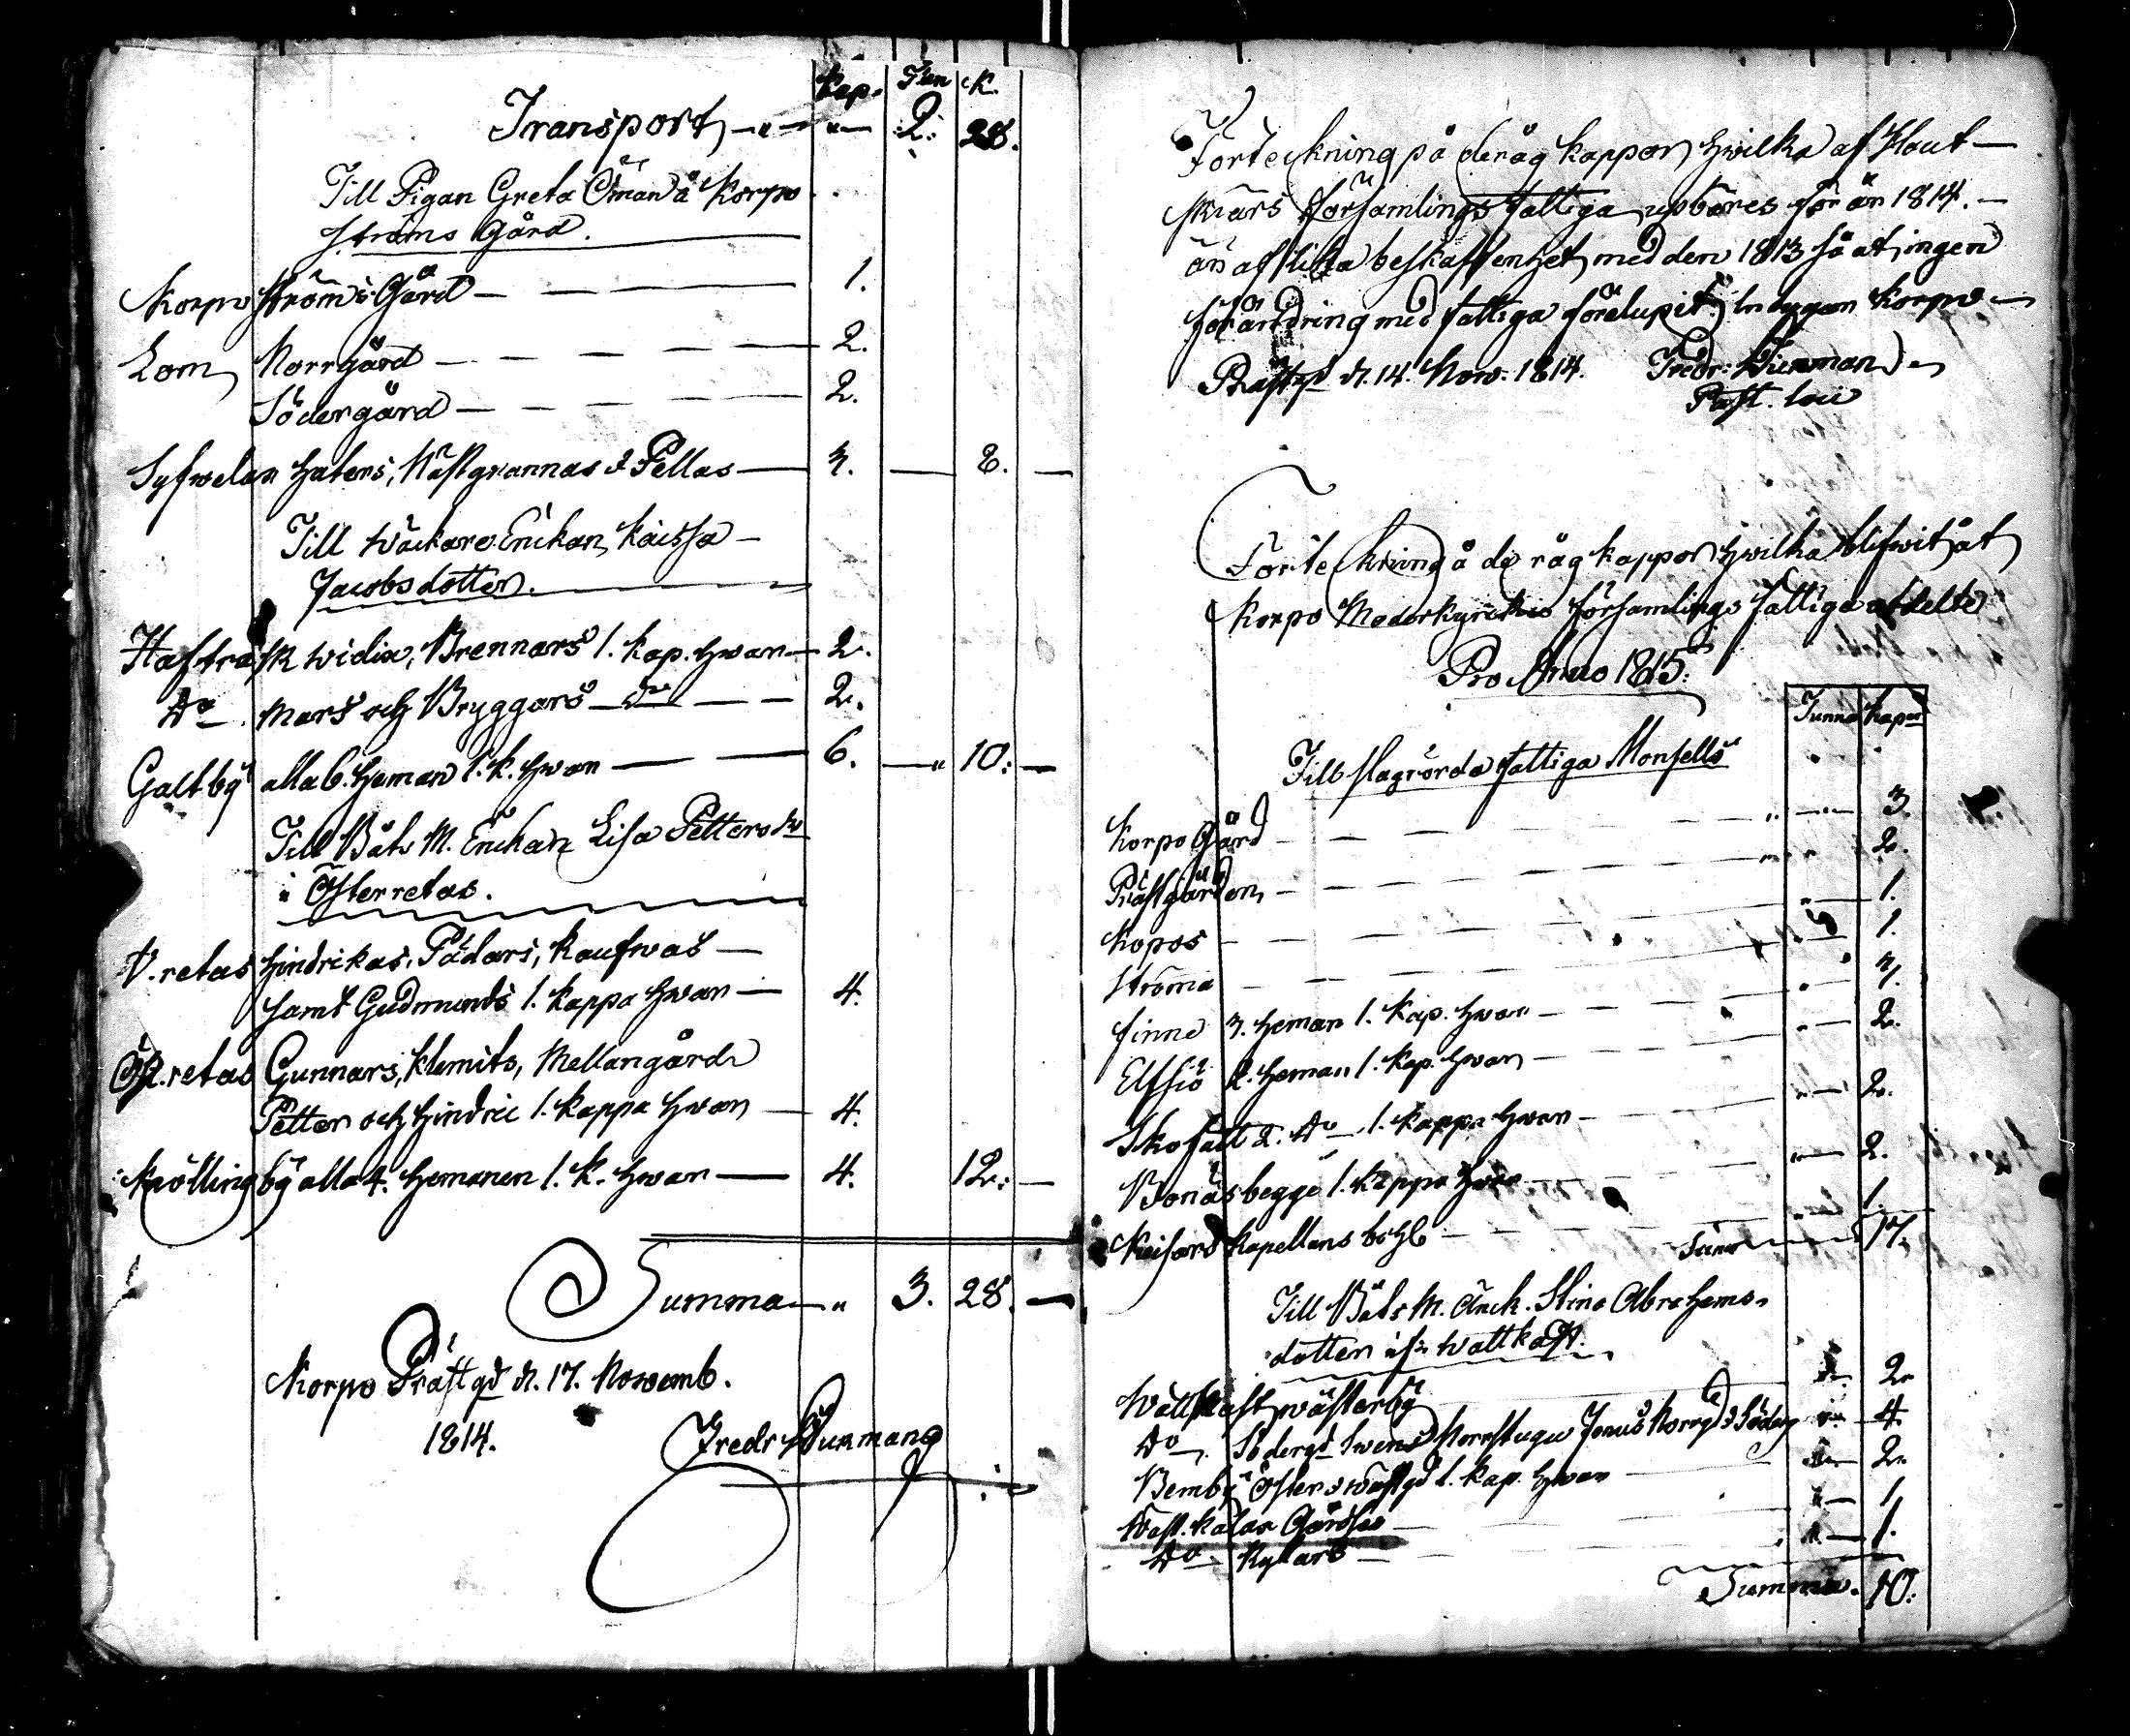 Kap. Tun K.
Transport —"— "— 2. 28.
Till Pigan Greta Öman å Korpo
Ströms Gård.
Korpo Ströms Gård — 1.
Lom Norrgård — 2.
Södergård — 2.
Syfwelax Haters, Nästgrannas & Pellas — 3. — 8. —
Till Wäckare Enkan Kaissa
Jacobsdotter.
Hafträsk Widix, Brennars 1. kap. hwar — 2.
Do Mars och Bryggars do — 2.
Galtby alla 6. Heman 1. k. hwar — 6. —" 10: —
Till Båts M. Enkan Lisa Petters dr
i Österretas.
V. retas Hindrikas, Pådars, Kaufwas —
samt Gudmunds 1. kappa hwar — 4.
Öst. retas Gunnars, Klemits, Mellangårds
Petter och Hindric 1. kappa hwar — 4.
Knölling by alla 4. Hemanen 1. K. hwar — 4. 12: —
Summa —" 3. 28. —
Korpo Prästgd d. 17. Novemb.
1814.
Fredr Wurman
Förteckning på de råg kappor hwilka af Hout-
skiärs Församlings fattiga upbäres för år 1814. —
är af lika beskaffenhet med den 1813 så at ingen
förändring med fattiga förelupit, Korpo
Prästgd d. 14. Now. 1814. Fredr: Wurman
Past. loci
Förteckning å de råg kappor hwilka blifwit åt
Korpo Moderkyrckio församlings fattiga afdelte
Pro Anno 1815.
Tunna kapor
Till slagrörda fattiga Monsells
Korpo Gård — " — 3.
Prästgården — " 2.
Kopos — " — 1.
Ströma — " 1.
Finno 3. Heman 1. Kap. hwar — " — 3.
Elfsiö 2. Heman 1. Kap. hwar — " — 2.
Skofält 2. Do 1. Kappa hwar — " — 2.
Bonäs begge 1. Kappa hwar — " — 2.
Keisars Kapellans bohl — " 1.
Suma 17.
Till Båts M. Änck. Stina Abrahams-
dotter ifr. Wattkast.
Wattkast Wästerby — 2.
Do Södergd Swens Norrstugu Jonus Norrgd & Söderg — 4.
Bemby Öster & Wästgd 1. kap. hwar — 2.
Wäst. Kalax Gårdsis — 1.
Do Rylars — 1.
Summa. 10.